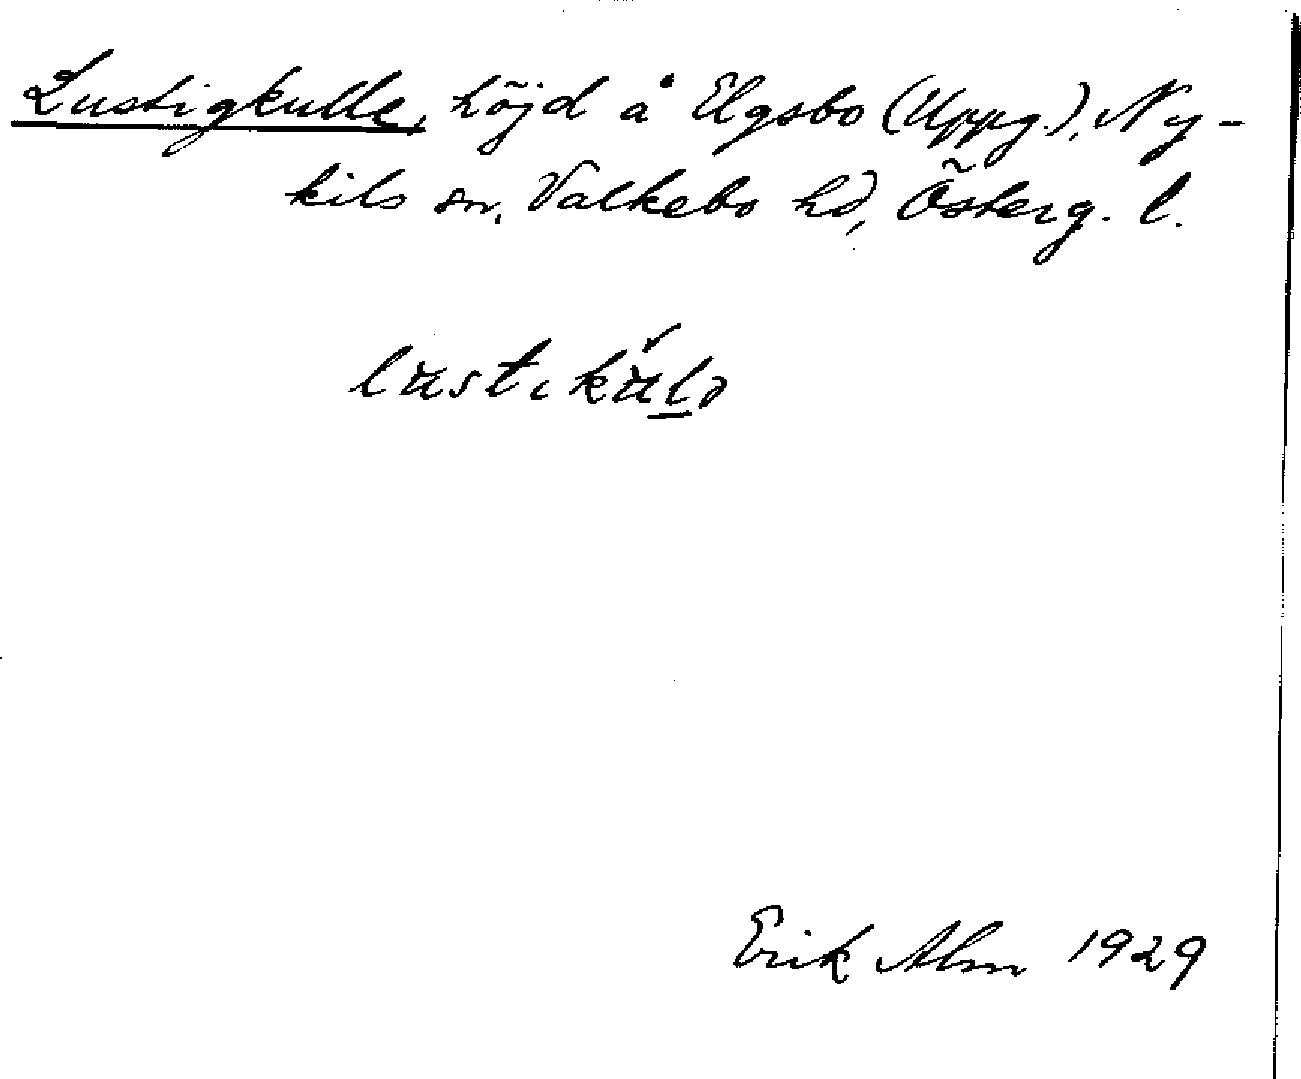 Lustigkulle, höjd å Elgsbo (Uppg.), Ny-
kils sn, Valkebo hd, Österg. l.
lustikulə
Erik Alm 1929